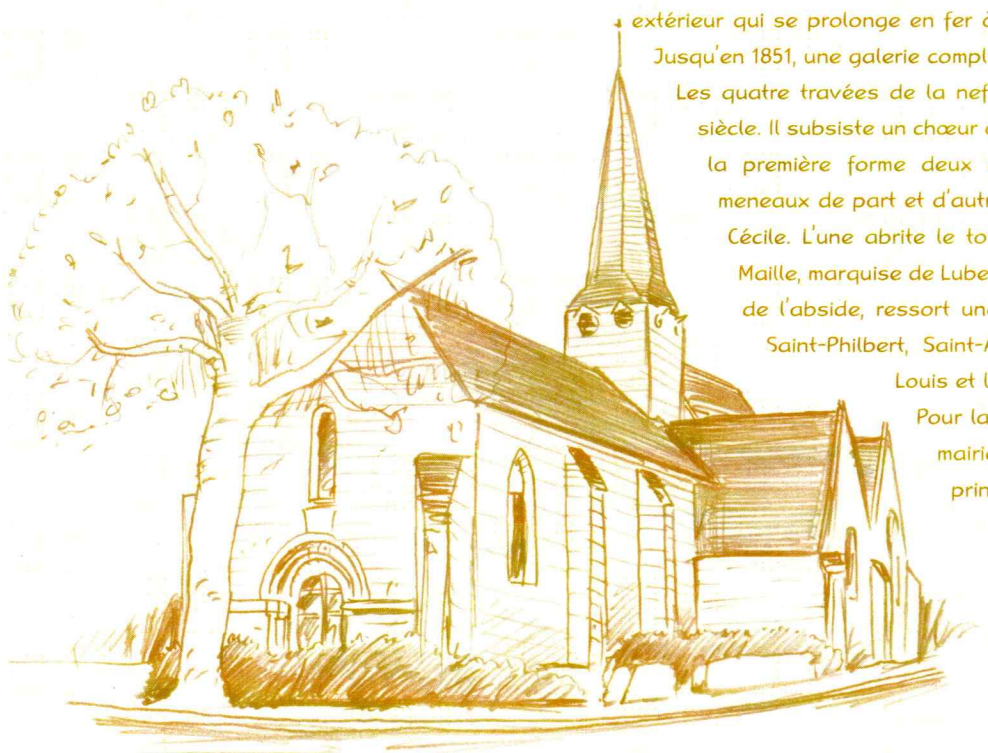 extérieur qui se prolonge en fer
Jusqu'en 1851, une galerie compl
Les quatre travées de la nef
siècle. Il subsiste un chœur
la première forme deux
meneaux de part et d'autr
Cécile. L'une abrite le to
Maille, marquise de Lube
de l'abside, ressort un
Saint-Philbert, Saint-
Louis et l
Pour la
mairi
prin